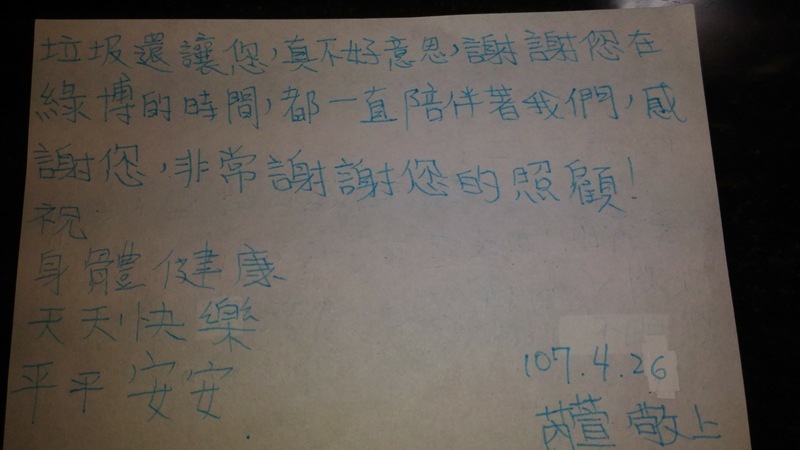 垃圾還讓您，真不好意思，謝謝您在
綠博的時間，都一直陪伴著我們，感
謝您，非常謝謝您的照顧！
祝
身體健康
天天快樂
平平安安
107.4.26
芮萱 敬上